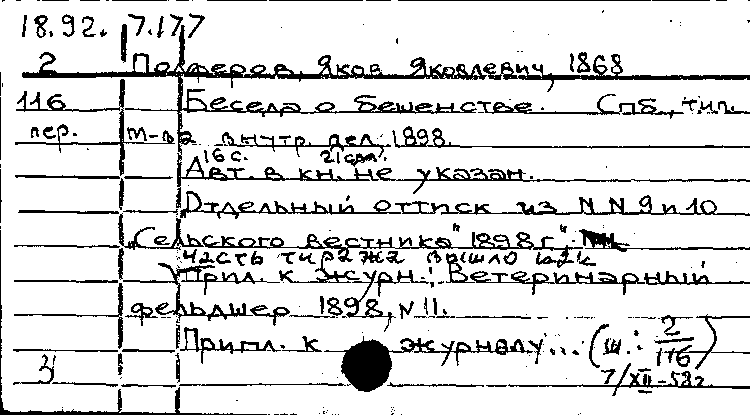 18.92. 7.177
2 Полферов, Яков Яковлевич, 1868
116 Беседа о бешенстве. Спб., тип.
пер. т-ва внутр. дел, 1898.
16 с. 21 см.
Авт. в кн. не указан.
Отдельный оттиск из NN 9 и 10
"Сельского вестника" 1898 г.
часть тиража вышло как
Прил. к журн.: Ветеринарный
фельдшер 1898, N 11.
Прил. к журналу... (ш.: 2/116)
7/XII-58г